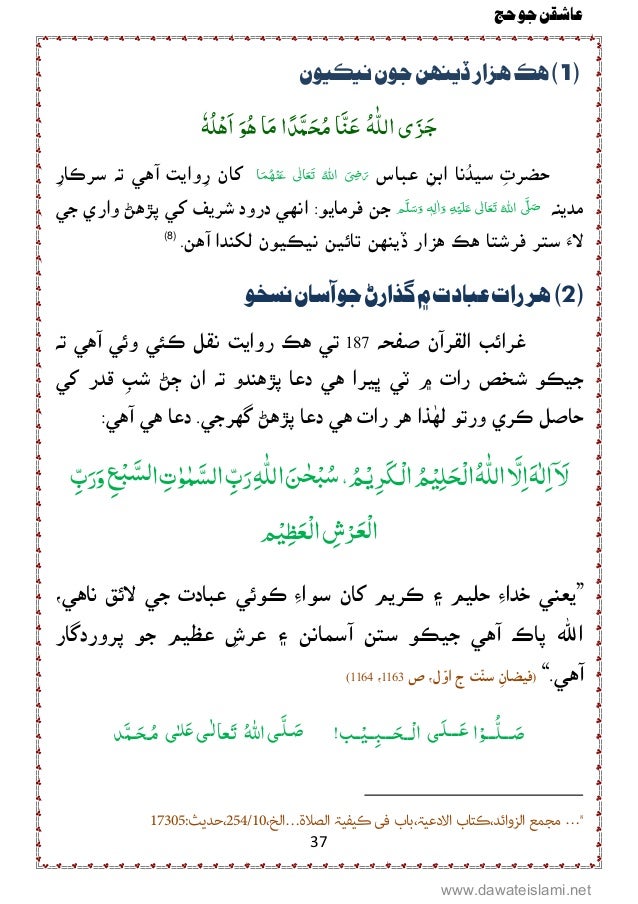 عاشقن جو حج
(1) هڪ هزار ڏينهن جون نيڪيون
جَزَی اللّٰهُ عَنَّا مُحَمَّدًا مَا هُوَ اَهْلُهٗ
حضرتِ سيدُنا ابنِ عباس رَضِیَ اللہُ تَعَالٰی عَنْہُمَا کان رِوايت آهي تہ سرڪارِ
مدينہ صَلَّی اللہُ تَعَالٰی عَلَیْہِ وَاٰلِہٖ وَسَلَّم جن فرمايو: انهي درود شريف کي پڙهڻ واري جي
لاءِ ستر فرشتا هڪ هزار ڏينهن تائين نيڪيون لکندا آهن. (8)
(2) هر رات عبادت ۾ گذارڻ جو آسان نسخو
غرائب القرآن صفحہ 187 تي هڪ روايت نقل ڪئي وئي آهي تہ
جيڪو شخص رات ۾ ٽي ڀيرا هي دعا پڙهندو تہ ان ڄڻ شبِ قدر کي
حاصل ڪري ورتو لهٰذا هر رات هي دعا پڙهڻ گهرجي. دعا هي آهي:
لَآ اِلٰهَ اِلَّا اللّٰهُ الْحَلِيْمُ الْكَرِيْمُ، سُبْحٰنَ اللّٰهِ رَبِّ السَّمٰوٰتِ السَّبْعِ وَرَبِّ
الْعَرْشِ الْعَظِيْم
”يعني خداءِ حليم ۽ ڪريم کان سواءِ ڪوئي عبادت جي لائق ناهي،
الله پاڪ آهي جيڪو ستن آسمانن ۽ عرشِ عظيم جو پروردگار
آهي.“ (فيضانِ سنّت ج اوّل، ص 1163، 1164)
صَلُّوْا عَلَی الْحَبِيْب! صَلَّی اللهُ تَعالٰی عَلٰی مُحَمَّد
8… مجمع الزوائد،ڪتاب الادعية،باب فی ڪيفية الصلاة…الخ،254/10،حديث:17305
37
www.dawateislami.net